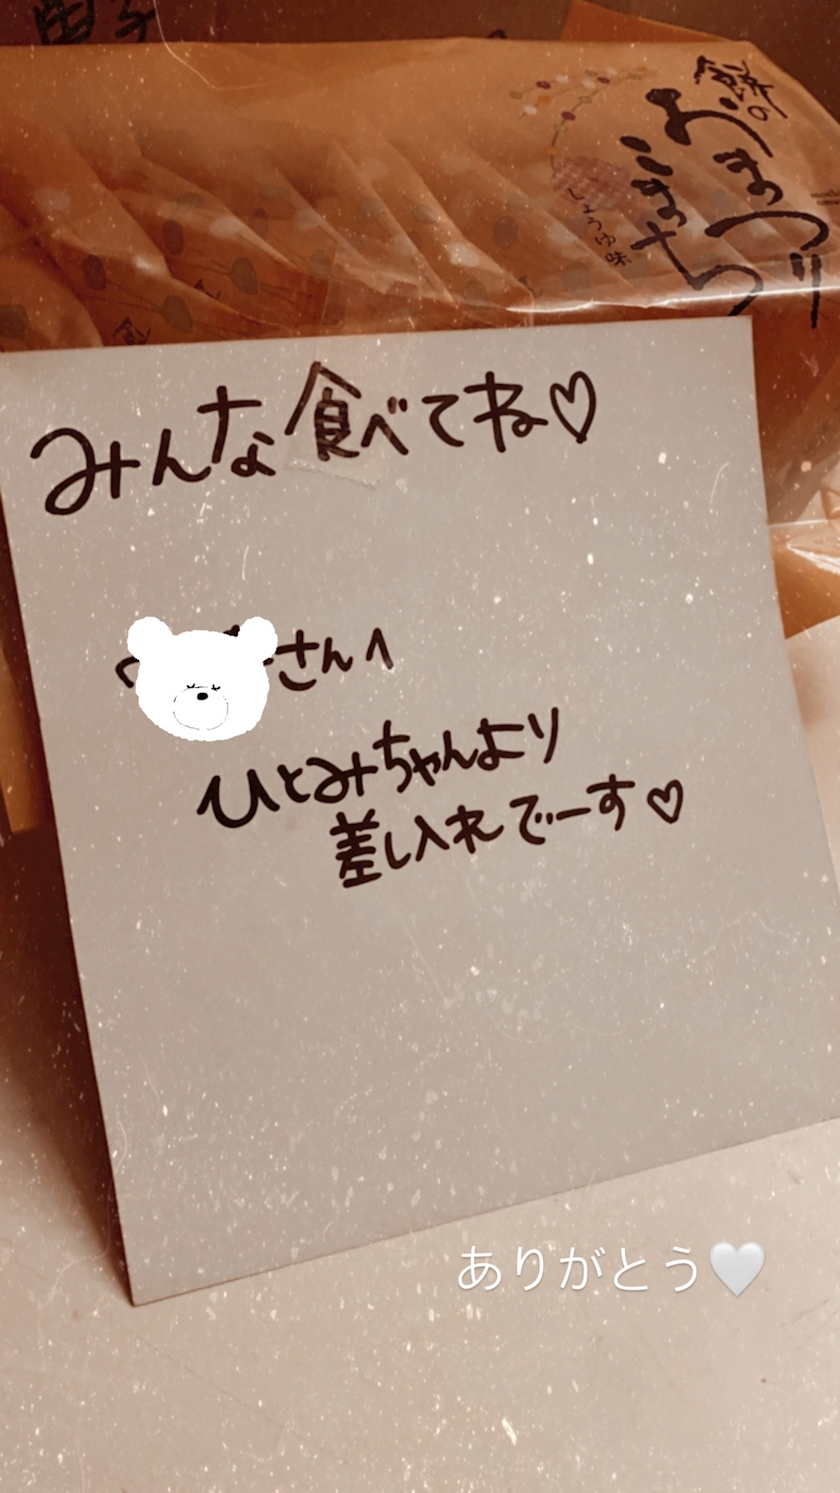 餅の
おまつり
こまち
しょうゆ味
みんな食べてね♡
さんへ
ひとみちゃんより
差し入れでーす♡
ありがとう🤍